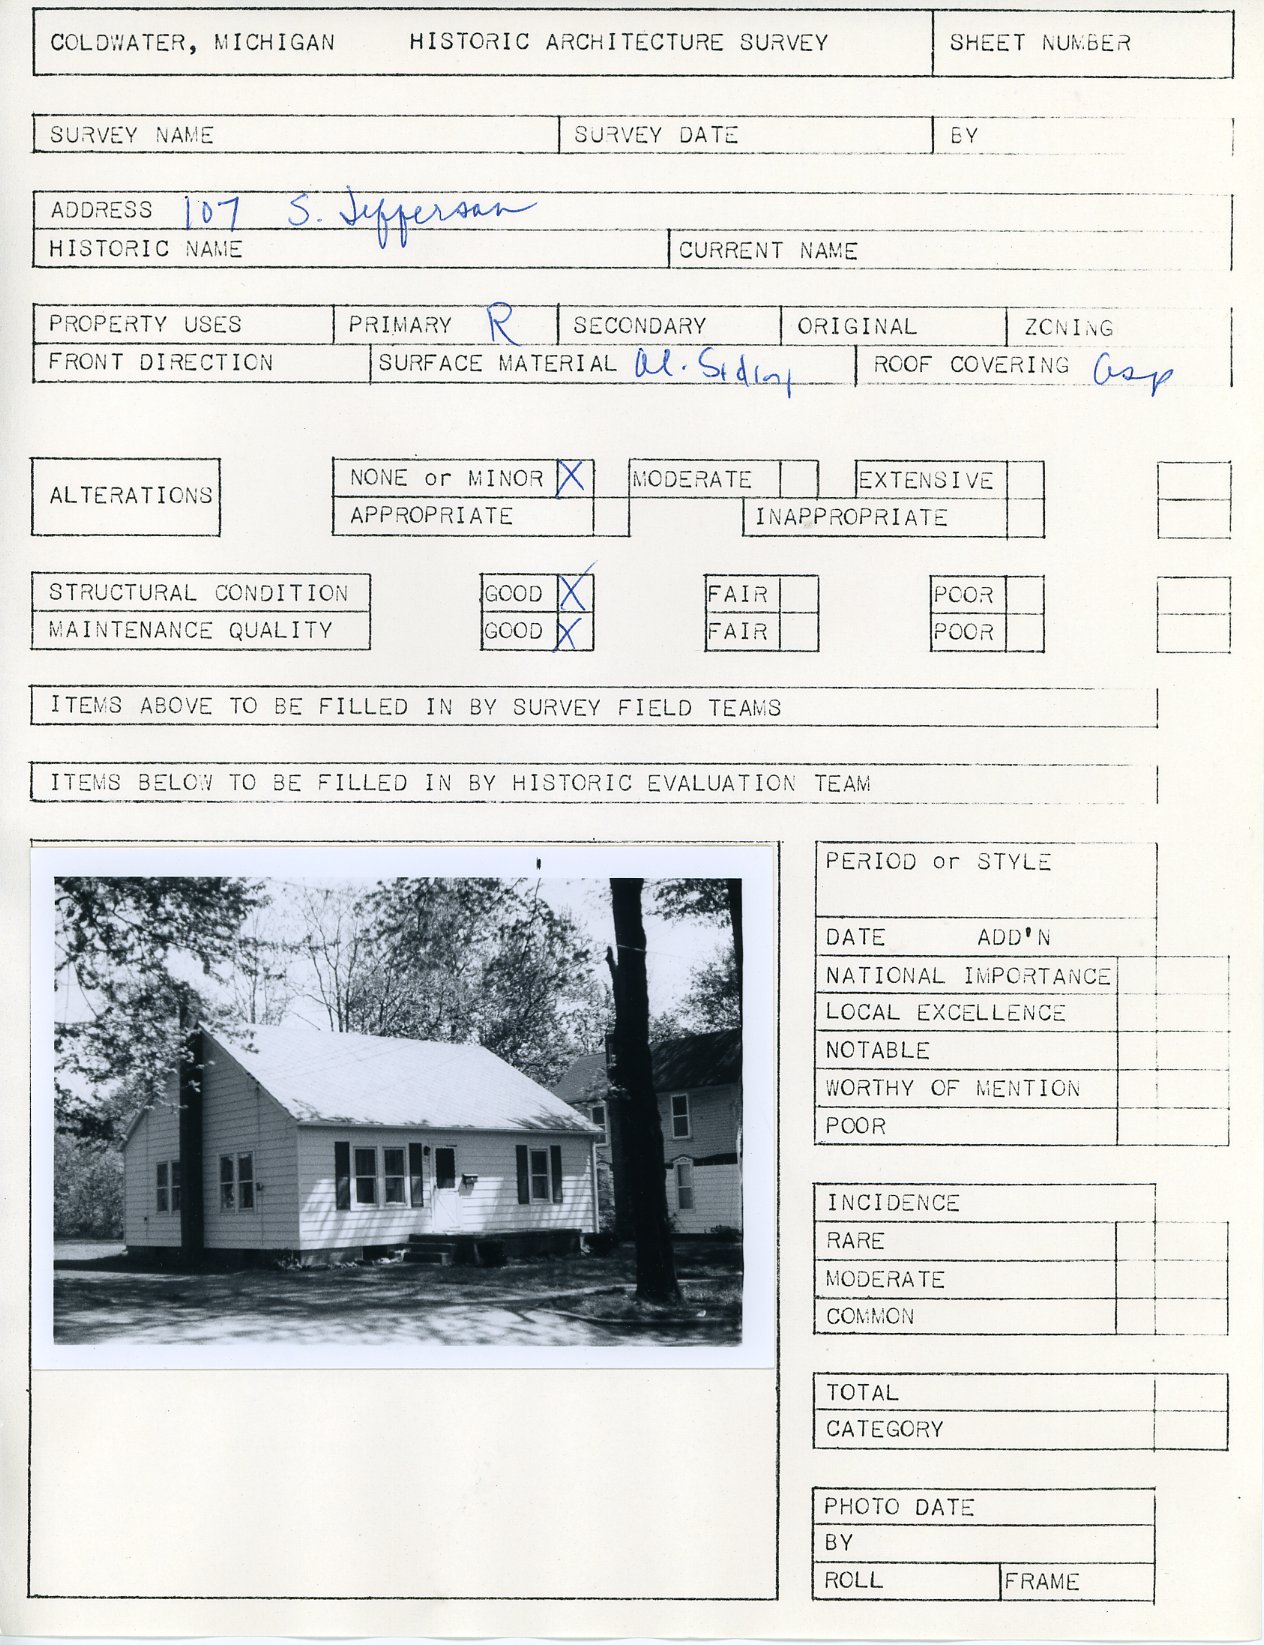 COLDWATER, MICHIGAN HISTORIC ARCHITECTURE SURVEY SHEET NUMBER
SURVEY NAME SURVEY DATE BY
ADDRESS 107 S. Jefferson
HISTORIC NAME CURRENT NAME
PROPERTY USES PRIMARY R SECONDARY ORIGINAL ZONING
FRONT DIRECTION SURFACE MATERIAL Al. Siding ROOF COVERING asp
ALTERATIONS NONE or MINOR X MODERATE EXTENSIVE
APPROPRIATE INAPPROPRIATE
STRUCTURAL CONDITION GOOD X FAIR POOR
MAINTENANCE QUALITY GOOD X FAIR POOR
ITEMS ABOVE TO BE FILLED IN BY SURVEY FIELD TEAMS
ITEMS BELOW TO BE FILLED IN BY HISTORIC EVALUATION TEAM
PERIOD or STYLE
DATE ADD'N
NATIONAL IMPORTANCE
LOCAL EXCELLENCE
NOTABLE
WORTHY OF MENTION
POOR
INCIDENCE
RARE
MODERATE
COMMON
TOTAL
CATEGORY
PHOTO DATE
BY
ROLL FRAME